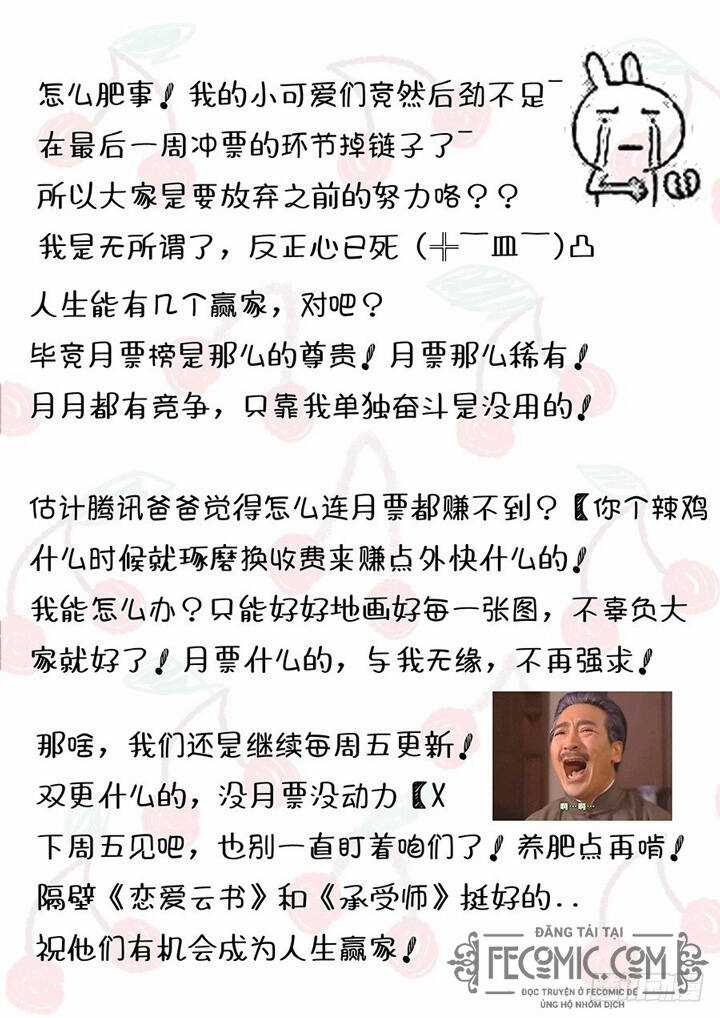 怎么肥事！我的小可爱们竟然后劲不足¯
在最后一周冲票的环节掉链子了¯
所以大家是要放弃之前的努力咯？？
我是无所谓了，反正心已死（╬￣皿￣）凸
人生能有几个赢家，对吧？
毕竟月票榜是那么的尊贵！月票那么稀有！
月月都有竞争，只靠我单独奋斗是没用的！
估计腾讯爸爸觉得怎么连月票都赚不到？【你个辣鸡
什么时候就琢磨换收费来赚点外快什么的！
我能怎么办？只能好好地画好每一张图，不辜负大
家就好了！月票什么的，与我无缘，不再强求！
那啥，我们还是继续每周五更新！
啊…啊…
双更什么的，没月票没动力【X
下周五见吧，也别一直盯着咱们了！养肥点再啃！
隔壁《恋爱云书》和《承受师》挺好的..
祝他们有机会成为人生赢家！
ĐĂNG TẢI TẠI
FECOMIC.COM
ĐỌC TRUYỆN Ở FECOMIC ĐỂ
ỦNG HỘ NHÓM DỊCH